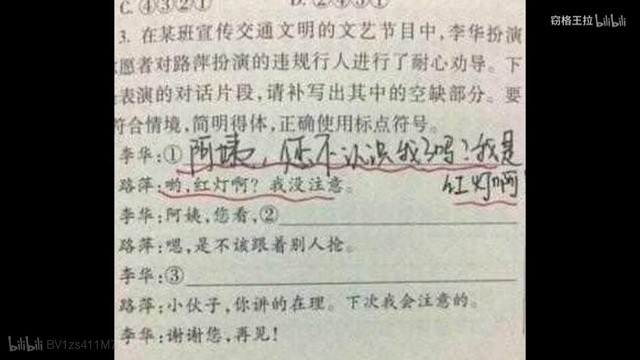 窃格王拉 bilibili
C. ④③②① D. ②④③①
3. 在某班宣传交通文明的文艺节目中,李华扮演
愿者对路萍扮演的违规行人进行了耐心劝导。下
表演的对话片段,请补写出其中的空缺部分。要
符合情境,简明得体,正确使用标点符号。
李华:①阿姨,您不认识我了吗?我是
红灯啊
路萍:哟,红灯啊?我没注意。
李华:阿姨,您看,②
路萍:嗯,是不该跟着别人抢。
李华:③
路萍:小伙子,你讲的在理。下次我会注意的。
李华:谢谢您,再见!
bilibili BV1zs411M7